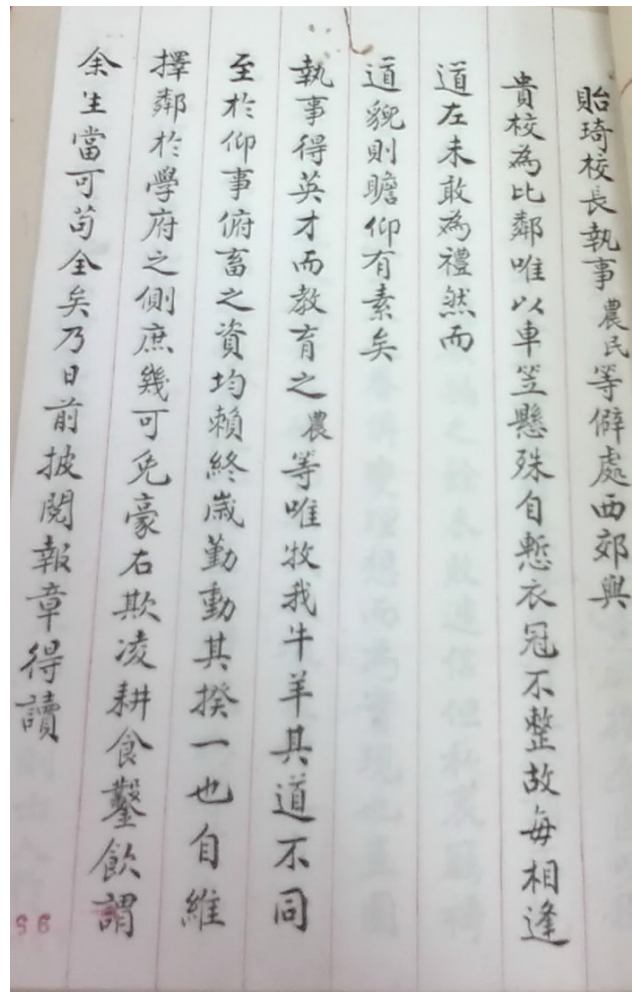 貽琦校長執事農民等僻處西郊與
貴校為比鄰唯以車笠懸殊自慙衣冠不整故每相逢
道左未敢為禮然而
道貌則瞻仰有素矣
執事得英才而教育之農等唯牧我牛羊其道不同
至於仰事俯畜之資均賴終歲勤動其揆一也自維
擇鄰於學府之側庶幾可免豪右欺凌耕食鑿飲謂
余生當可苟全矣乃日前披閱報章得讀
96